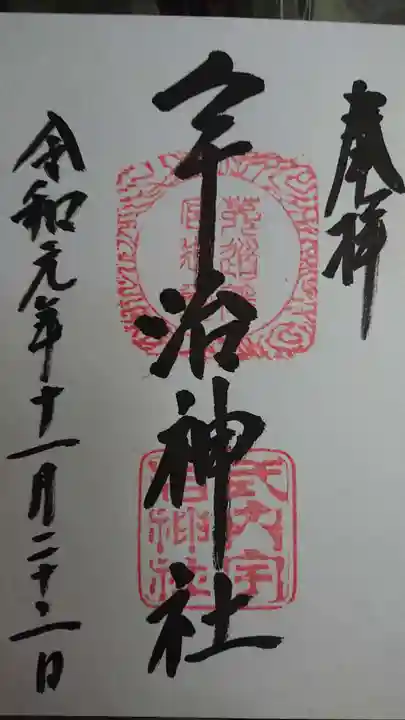 奉拝
宇治神社
式内宇治神社
令和元年十一月二十二日